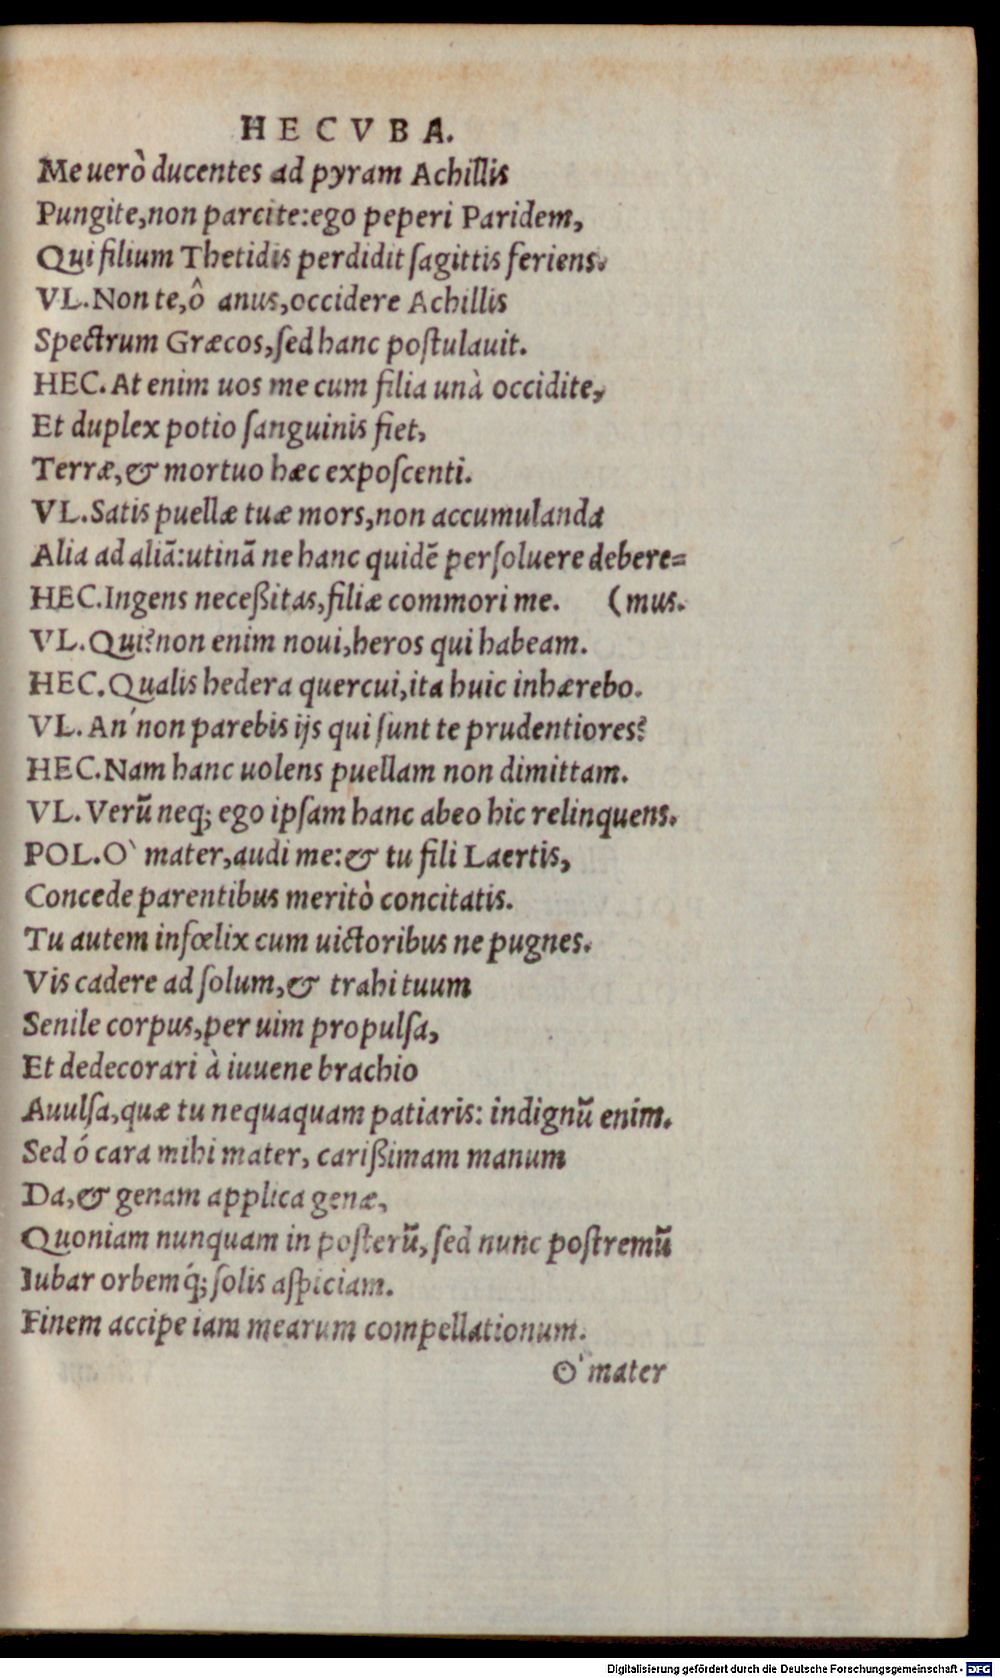 HECVBA.
Me uerò ducentes ad pyram Achillis
Pungite, non parcite: ego peperi Paridem,
Qui filium Thetidis perdidit ſagittis feriens.
VL. Non te, ô anus, occidere Achillis
Spectrum Græcos, ſed hanc poſtulauit.
HEC. At enim uos me cum filia unà occidite,
Et duplex potio ſanguinis fiet,
Terræ, & mortuo hæc expoſcenti.
VL. Satis puellæ tuæ mors, non accumulanda
Alia ad aliã: utinã ne hanc quidẽ perſoluere debere=
HEC. Ingens neceßitas, filiæ commori me. (mus.
VL. Qui? non enim noui, heros qui habeam.
HEC. Qualis hedera quercui, ita huic inhærebo.
VL. An' non parebis ijs qui ſunt te prudentiores?
HEC. Nam hanc uolens puellam non dimittam.
VL. Verũ neq; ego ipſam hanc abeo hic relinquens.
POL. O` mater, audi me: & tu fili Laertis,
Concede parentibus meritò concitatis.
Tu autem infœlix cum uictoribus ne pugnes.
Vis cadere ad ſolum, & trahi tuum
Senile corpus, per uim propulſa,
Et dedecorari à iuuene brachio
Auulſa, quæ tu nequaquam patiaris: indignũ enim.
Sed ó cara mihi mater, carißimam manum
Da, & genam applica genæ,
Quoniam nunquam in poſterũ, ſed nunc poſtremũ
Iubar orbemq́; ſolis aſpiciam.
Finem accipe iam mearum compellationum.
O' mater
Digitalisierung gefördert durch die Deutsche Forschungsgemeinschaft - DFG